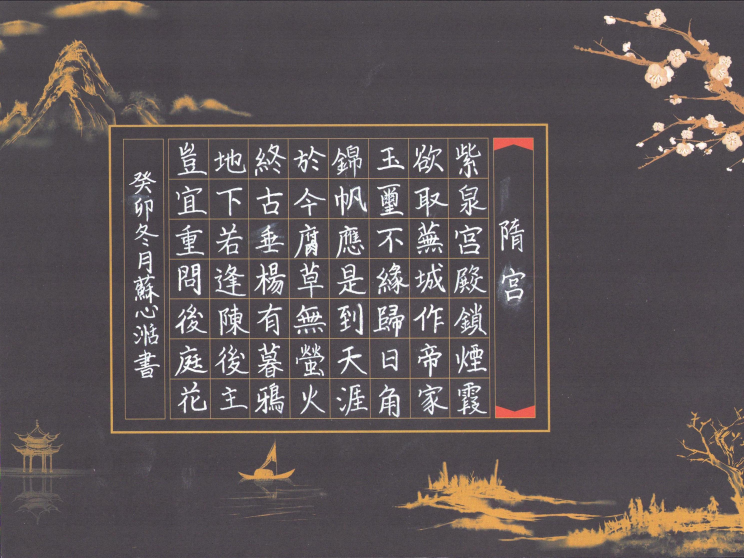 隋宮
紫泉宮殿鎖煙霞
欲取蕪城作帝家
玉璽不緣歸日角
錦帆應是到天涯
於今腐草無螢火
終古垂楊有暮鴉
地下若逢陳後主
豈宜重問後庭花
癸卯冬月蘇心湉書